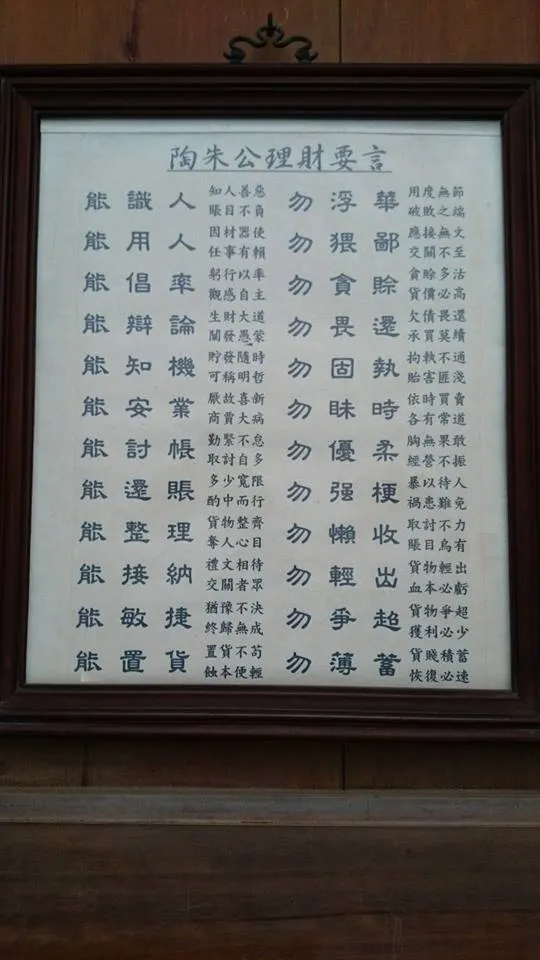 陶朱公理財要言
能識人
知人善惡
賬目不負
勿浮華
用度無節
破敗之端
能用人
因材器使
任事有賴
勿猥鄙
應接無文
交關不至
能倡率
躬行以率
觀感自主
勿貪賒
貪賒多沽
貨價必高
能辯論
生財大道
闢發愚蒙
勿畏還
欠債畏還
承買莫續
能知機
貯發隨時
可稱明哲
勿固執
拘執不通
貽害匪淺
能安業
厭故喜新
商賈大病
勿昧時
依時買賣
各有常道
能討帳
勤緊不怠
取討自多
勿優柔
胸無果敢
經營不振
能還賬
多少寬限
酌中而行
勿强梗
暴以待人
禍患難免
能整理
貨物整齊
奪人心目
勿懶收
取討不力
賬目烏有
能接納
禮文相待
交關者眾
勿輕出
貨物輕出
血本必虧
能敏捷
猶豫不決
終歸無成
勿爭超
貨物爭超
獲利必少
能置貨
置貨不苟
蝕本便輕
勿薄蓄
貨賤積蓄
恢復必速